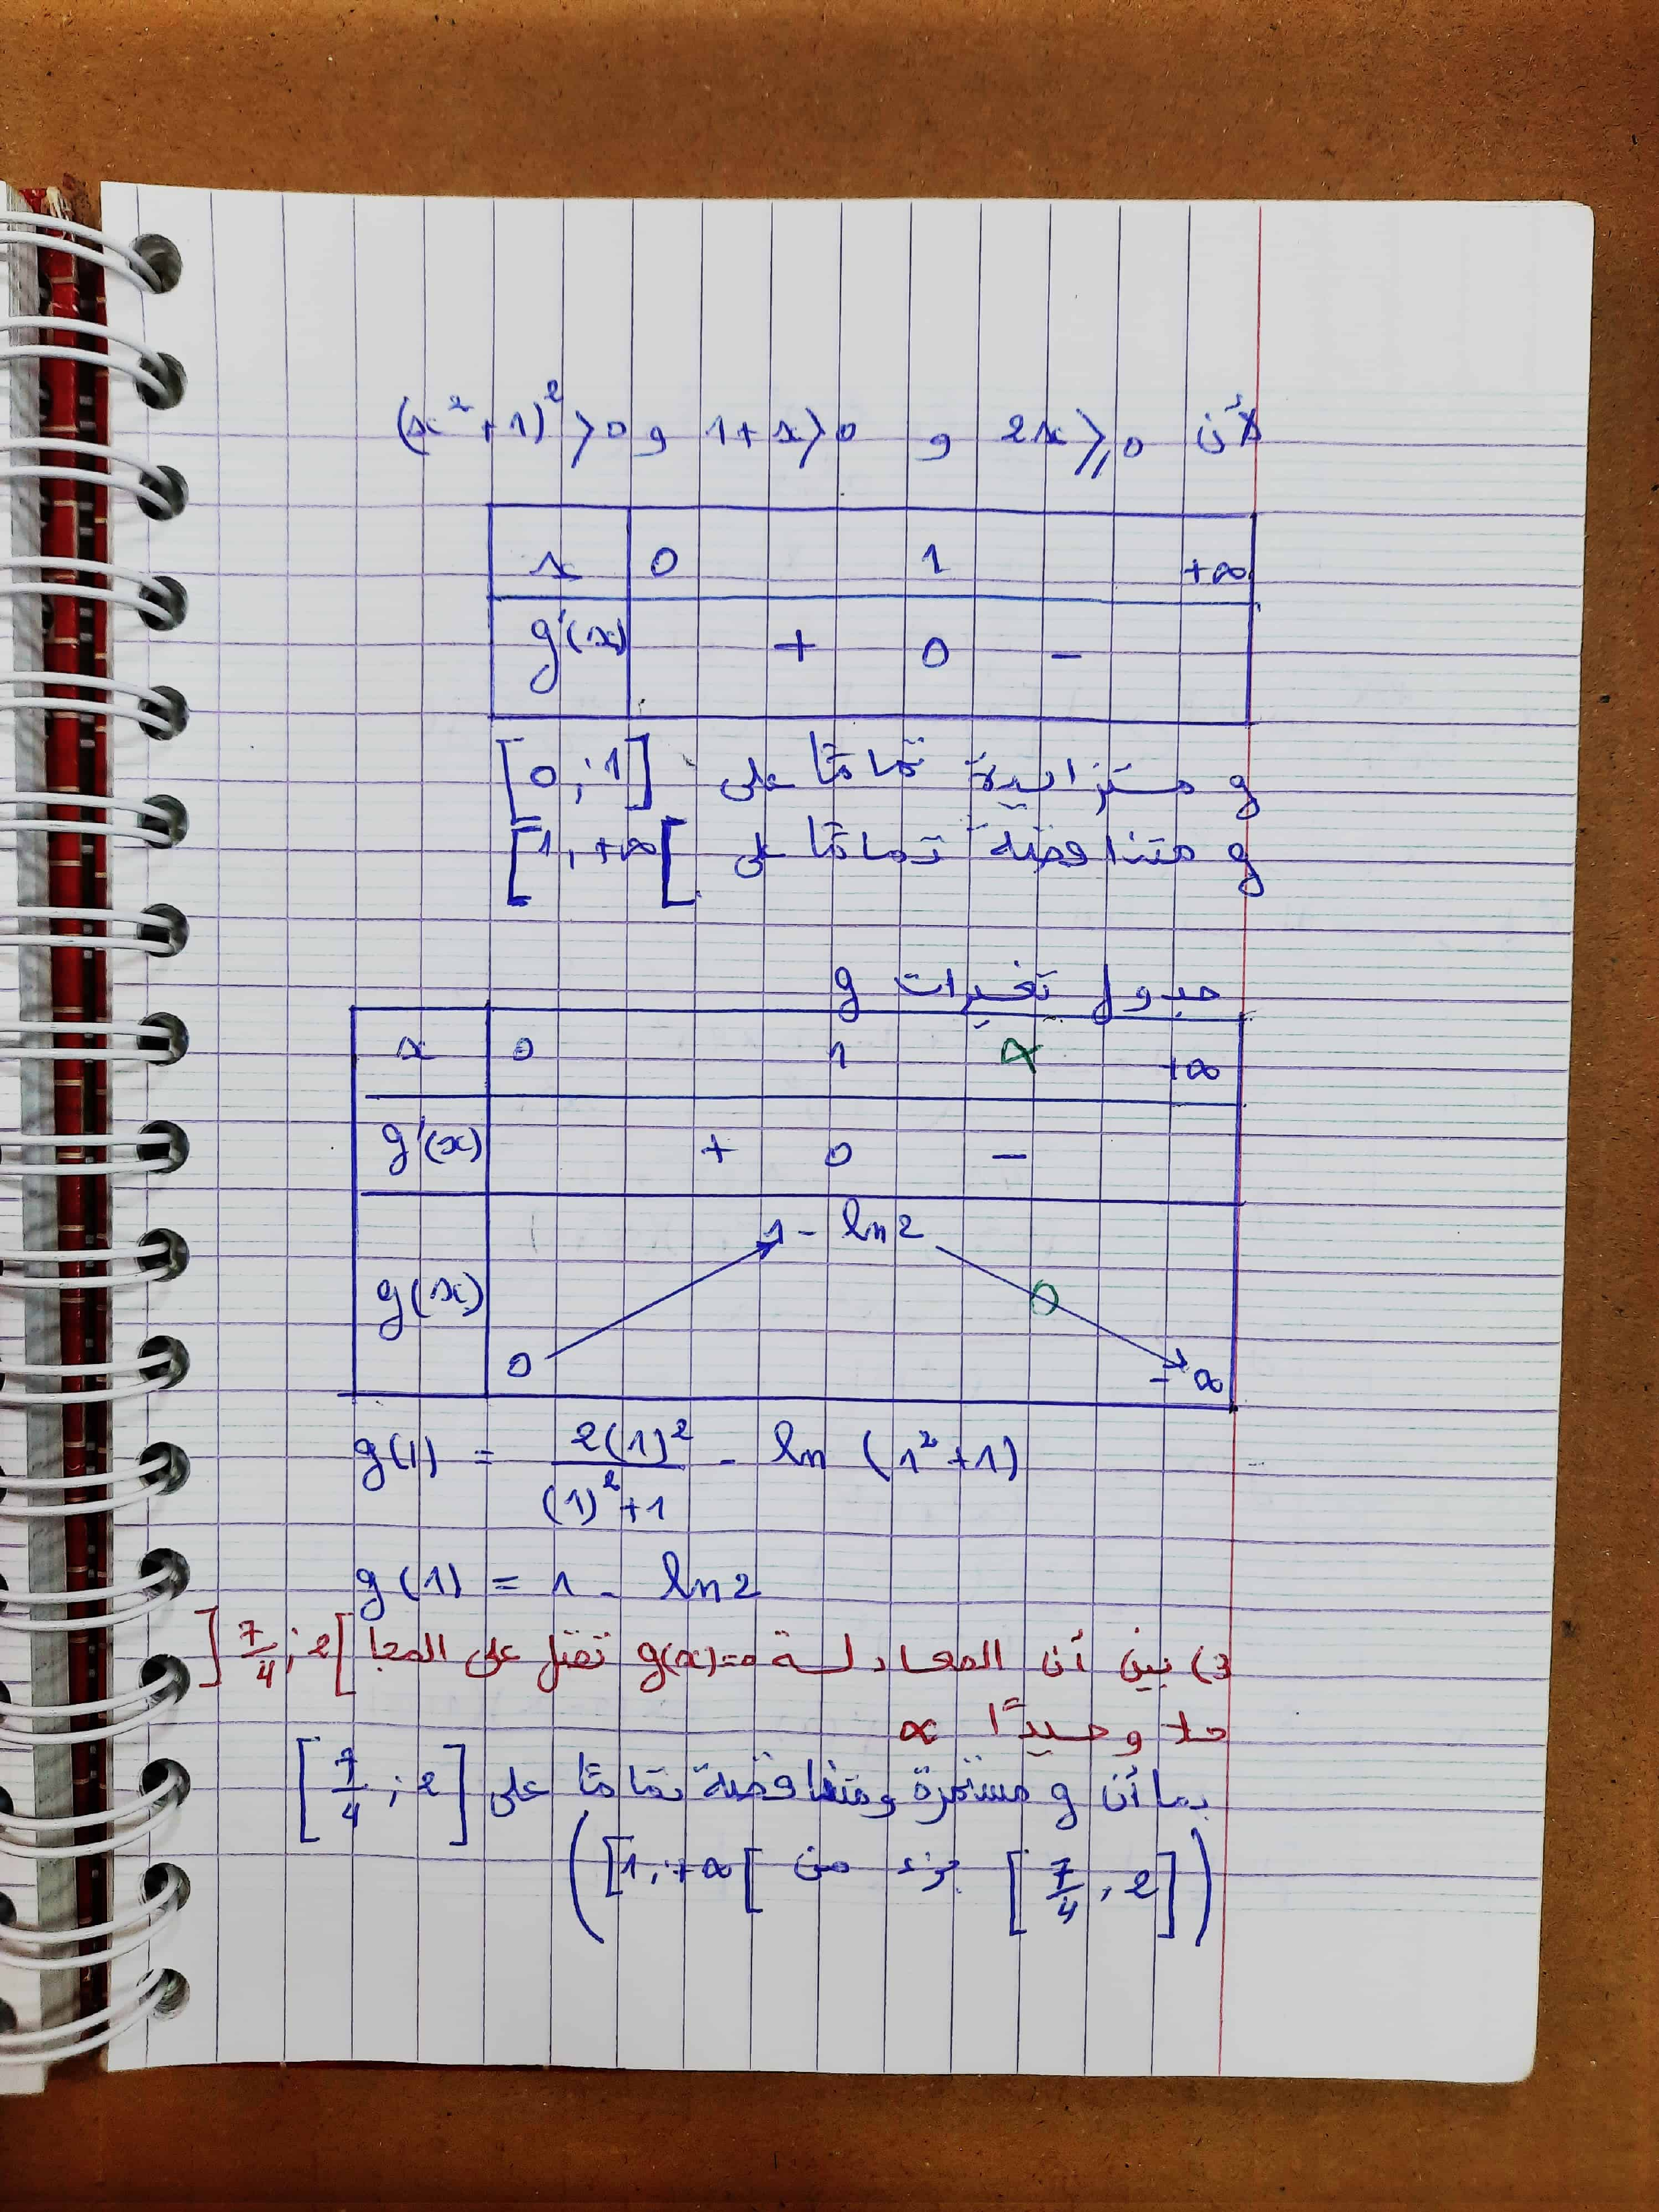 لأن 2x ⩾ 0 و 1+x > 0 و (x²+1)² > 0
x 0 1 +∞
g'(x) + 0 -
g متزايدة تمامًا على [0 ; 1]
g متناقصة تمامًا على [1, +∞[
جدول تغيرات g
x 0 1 α +∞
g'(x) + 0 -
g(x) 0 1 - ln 2 0 -∞
g(1) = 2(1)² / (1)²+1 - ln (1²+1)
g(1) = 1 - ln 2
3) بين أن المعادلة g(x)=0 تقبل على المجا ]7/4 ; 2[
حلا وحيدًا α
بما أن g مستمرة ومتناقصة تمامًا على [7/4 ; 2]
([7/4 ; 2] جزء من [1, +∞[)